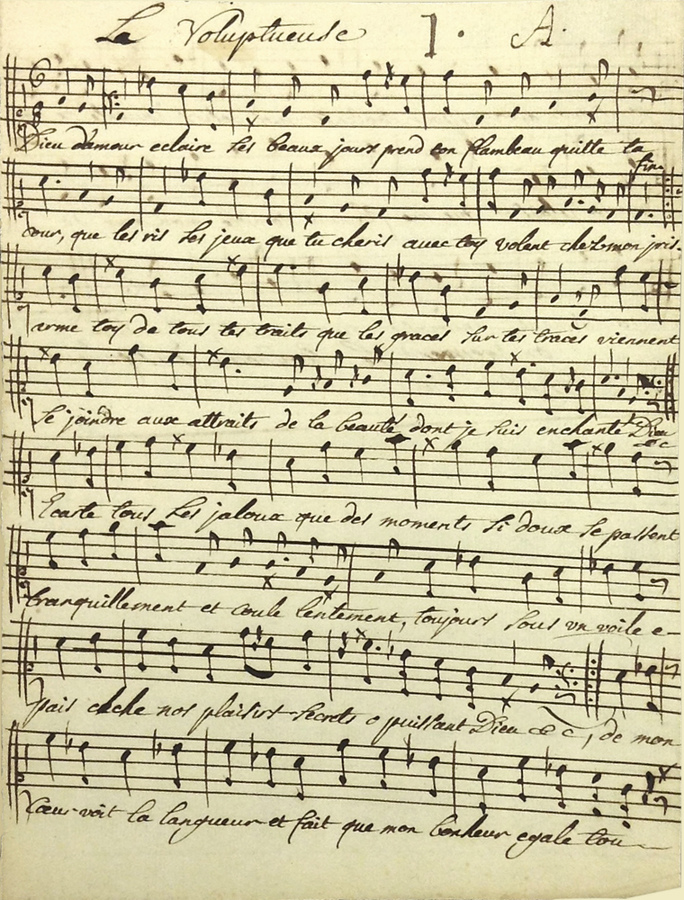 La Voluptueuse 1. A.
Dieu d'amour eclaire les beaux jours prend ton flambeau quitte ta
fin
cour, que les ris les jeux que tu cheris avec toy volent chez mon iris.
arme toy de tous tes traits que les graces sur tes traces viennent
se joindre aux attraits de la beauté dont je suis enchanté Dieu &c
Ecarte tous les jaloux que des moments si doux se passent
tranquillement et coule lentement, toujours sous un voile e-
pais cache nos plaisirs secrets o puissant Dieu &c, de mon
Cœur voit la langueur et fait que mon bonheur egale ton